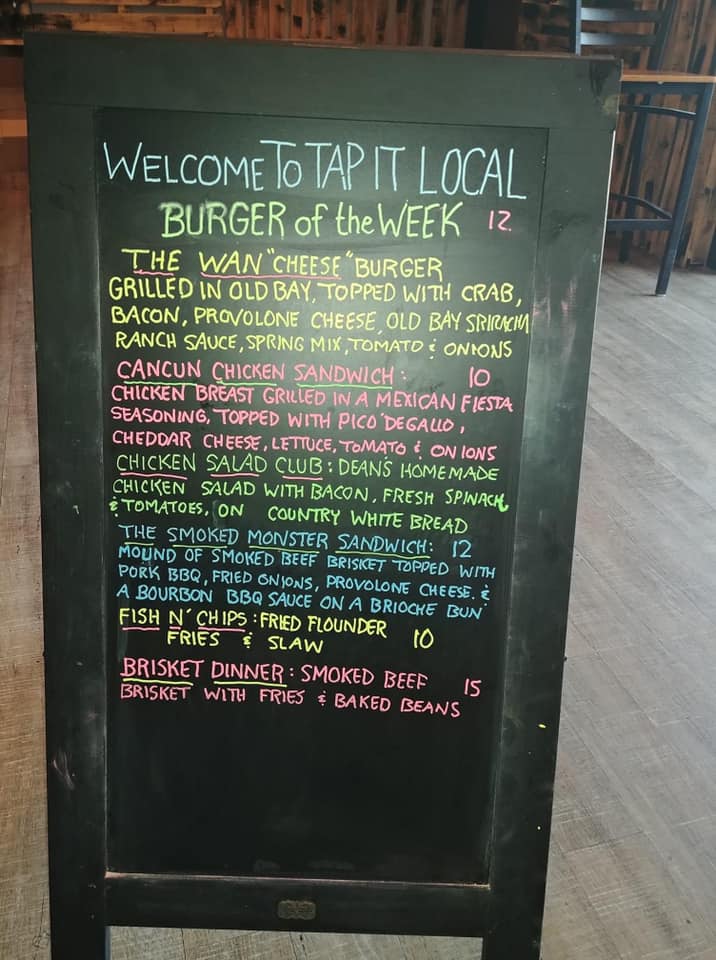 WELCOME TO TAP IT LOCAL
BURGER of the WEEK 12
THE WAN "CHEESE" BURGER
GRILLED IN OLD BAY, TOPPED WITH CRAB,
BACON, PROVOLONE CHEESE, OLD BAY SRIRACHA
RANCH SAUCE, SPRING MIX, TOMATO & ONIONS
CANCUN CHICKEN SANDWICH: 10
CHICKEN BREAST GRILLED IN A MEXICAN FIESTA
SEASONING, TOPPED WITH PICO DEGALLO,
CHEDDAR CHEESE, LETTUCE, TOMATO & ONIONS
CHICKEN SALAD CLUB: DEAN'S HOMEMADE
CHICKEN SALAD WITH BACON, FRESH SPINACH
& TOMATOES, ON COUNTRY WHITE BREAD
THE SMOKED MONSTER SANDWICH: 12
MOUND OF SMOKED BEEF BRISKET TOPPED WITH
PORK BBQ, FRIED ONIONS, PROVOLONE CHEESE, &
A BOURBON BBQ SAUCE ON A BRIOCHE BUN
FISH N' CHIPS: FRIED FLOUNDER 10
FRIES & SLAW
BRISKET DINNER: SMOKED BEEF 15
BRISKET WITH FRIES & BAKED BEANS